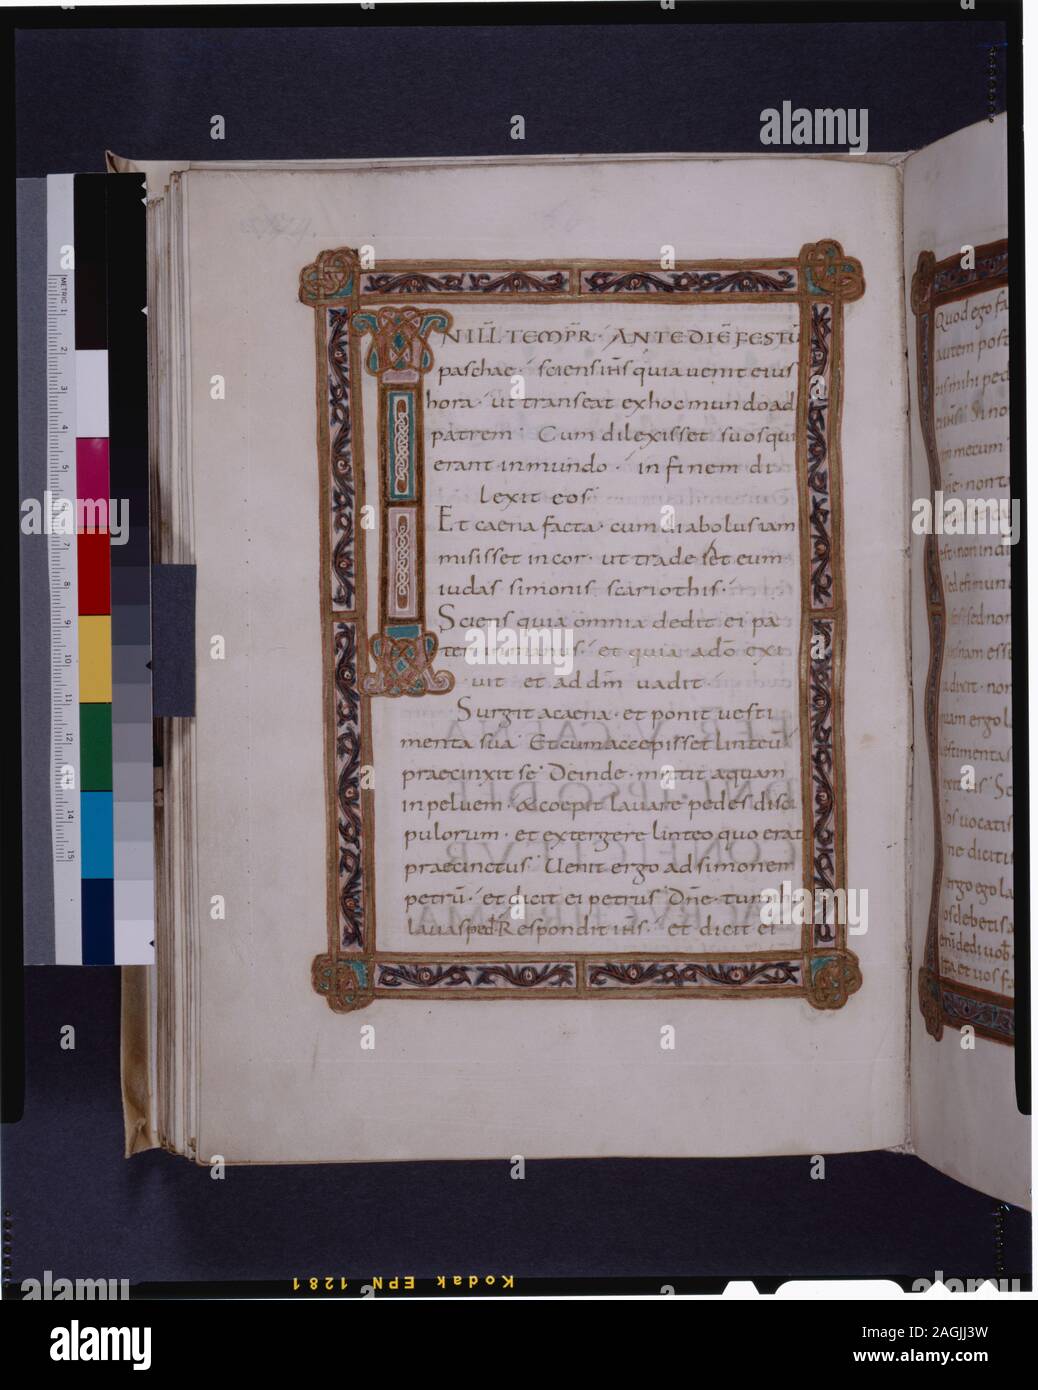 INILLTEMPR· ANTEDIEFESTU
paschae · sciens ihs quia uenit eius
hora · ut transeat ex hoc mundo ad
patrem · Cum dilexisset suos qui
erant in mundo · in finem di
lexit eos
Et caena facta · cum diabolus iam
misisset in cor · ut traderet eum
iudas simonis scariothis ·
Sciens quia omnia dedit ei pa
ter in manus · et quia a do exi
uit et ad dm uadit
Surgit a caena · et ponit uesti
menta sua Et cum accepisset linteu
praecinxit se Deinde mittit aquam
in peluem · & coepit lauare pedes disci
pulorum · et extergere linteo quo erat
praecinctus Uenit ergo ad simonem
petru · et dicit ei petrus Dne · tu mihi
lauas ped Respondit ihs · et dicit ei
Quod ego fa
autem post
FERVVCAENA
DNI
CONFICITVR
SACRV CHRISMA
METRIC 1
2
3
4
5
6
7
8
9
10
11
12
13
14
15
Kodak EPN 1281
alamy
Image ID: 2AGJJ3W
www.alamy.com